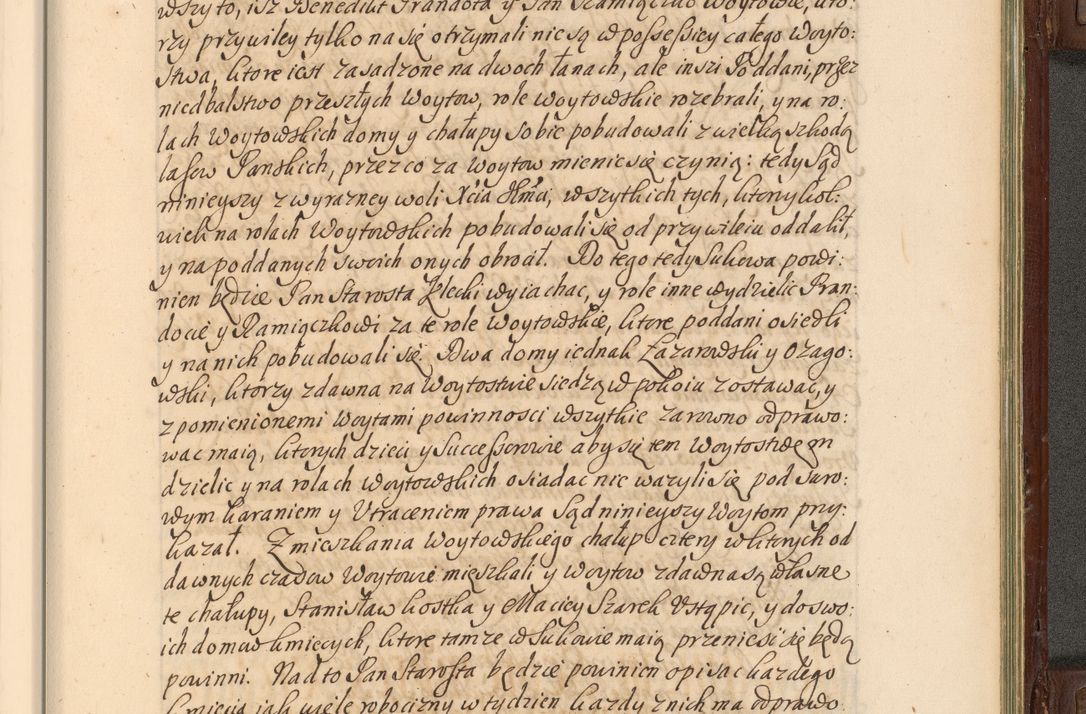 wszy to, isz Benedikt Prandota y Jan Ramiączko Woytowie, kto:
rzy przywiley tylko na się otrzymali nie są w possessiey całego Woyto:
stwa, ktore iest zasadzone na dwoch łanach, ale inszi Poddani, przez
niedbalstwo przeszłych Woytow, role Woytowskie rozebrali, y na ro:
lach Woytowskich domy y chałupy sobie pobudowali z wielką szkodą
lasow Panskich, przez co za Woytow mienic się czynią: tedy Sąd
ninieyszy z wyrazney woli Xcia JKmci, wszytkich tych, ktorzykol:
wiek na rolach Woytowskich pobudowali się od przywileiu oddalił,
y na poddanych swoich onych obrocił. Do tego tedy Sukowa powi:
nien będzie Pan Starosta Klecki wyiachac, y role inne wydzielic Pran:
docie y Ramiączkowi za te role Woytowskie, ktore poddani osiedli
y na nich pobudowali się. Dwa domy iednak Łazarowski y Ozago:
wski, ktorzy zdawna na Woytostwie siedzą w pokoiu zostawac, y
z pomienionemi Woytami powinnosci wszytkie zarowno odprawo:
wac maią, ktorych dzieci y Successorowie aby się tem Woytostwem
dzielic y na rolach woytowskich osiadac nie wazyli się pod suro:
wym karaniem y Utraceniem prawa Sąd ninieyszy Woytom przy:
kazał. Z mieszkania Woytowskiego chałup cztery w ktorych od
dawnych czasow Woytowie mięszkali y woytow zdawna są własne
te chałupy, Stanisław Kostka y Maciey Szarek Ustąpic, y do swo:
ich domow kmiecych, ktore tamze w Sukowie maią przeniesi się będą
powinni. Nadto Pan Starosta będzie powinien opisac kazdego
kmiecia iak wiele robocizny w tydzien kazdy z nich ma odprawo